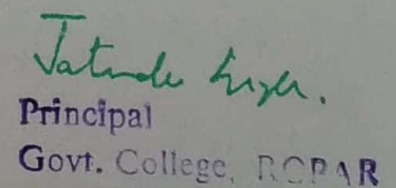 Jatinder Singh.
Principal
Govt. College, ROPAR